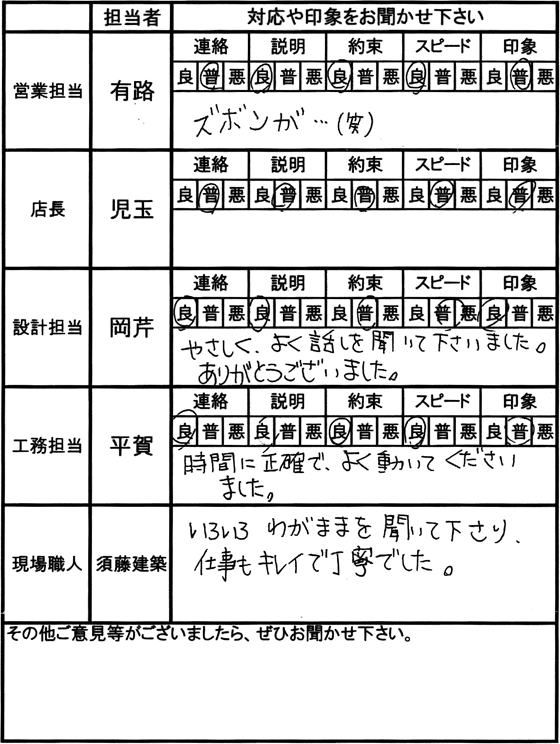 担当者 対応や印象をお聞かせ下さい
営業担当 有路
連絡 説明 約束 スピード 印象
良 普 悪 良 普 悪 良 普 悪 良 普 悪 良 普 悪
ズボンが…(笑)
店長 児玉
連絡 説明 約束 スピード 印象
良 普 悪 良 普 悪 良 普 悪 良 普 悪 良 普 悪
設計担当 岡芹
連絡 説明 約束 スピード 印象
良 普 悪 良 普 悪 良 普 悪 良 普 悪 良 普 悪
やさしく、よく話しを聞いて下さいました。
ありがとうございました。
工務担当 平賀
連絡 説明 約束 スピード 印象
良 普 悪 良 普 悪 良 普 悪 良 普 悪 良 普 悪
時間に正確で、よく動いてください
ました。
現場職人 須藤建築
いろいろ わがままを聞いて下さり、
仕事もキレイで丁寧でした。
その他ご意見等がございましたら、ぜひお聞かせ下さい。